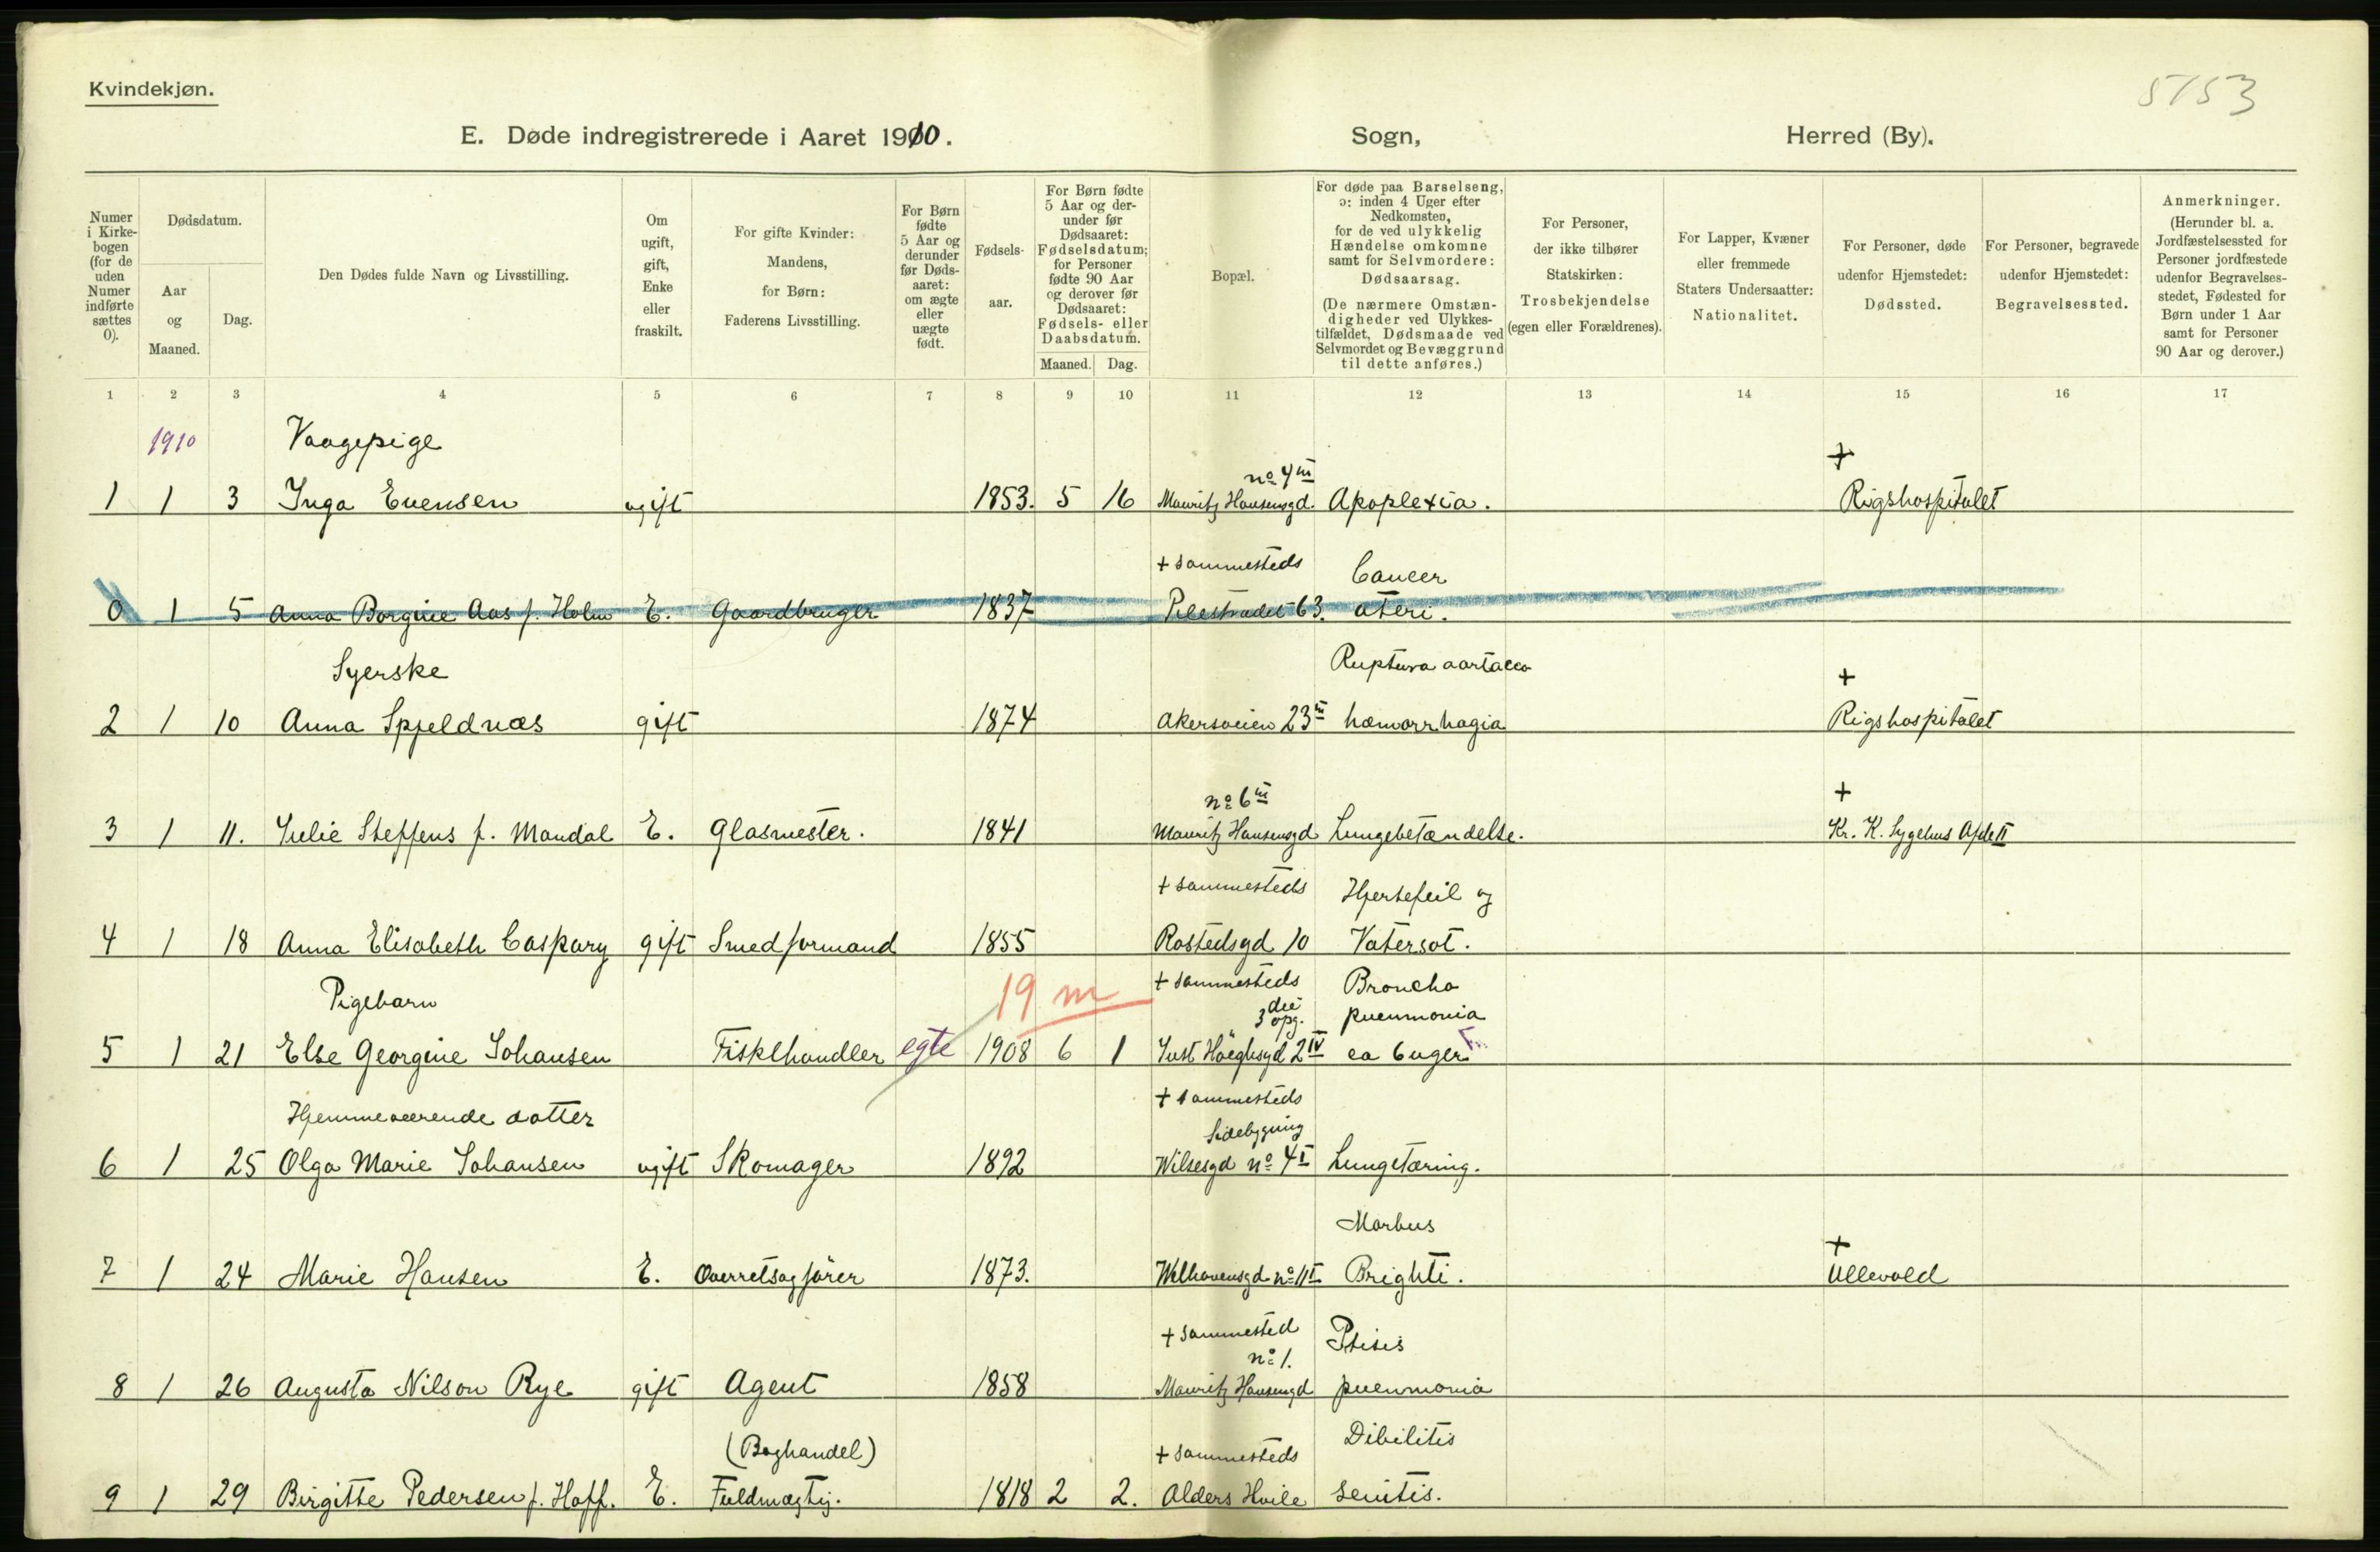 Kvindekjøn.
5153
E. Døde indregistrerede i Aaret 1910. Sogn, Herred (By).
Numer i Kirkebogen (for de uden Numer indførte sættes 0).
Dødsdatum.
Aar og Maaned.
Dag.
Den Dødes fulde Navn og Livsstilling.
Om ugift, gift, Enke eller fraskilt.
For gifte Kvinder: Mandens, for Børn: Faderens Livsstilling.
For Børn fødte 5 Aar og derunder før Dødsaaret: om ægte eller uægte født.
Fødselsaar.
For Børn fødte 5 Aar og derunder før Dødsaaret: Fødselsdatum; for Personer fødte 90 Aar og derover før Dødsaaret: Fødsels- eller Daabsdatum.
Maaned. Dag.
Bopæl.
For døde paa Barselseng, ɔ: inden 4 Uger efter Nedkomsten, for de ved ulykkelig Hændelse omkomne samt for Selvmordere: Dødsaarsag.
(De nærmere Omstændigheder ved Ulykkestilfældet, Dødsmaade ved Selvmordet og Bevæggrund til dette anføres.)
For Personer, der ikke tilhører Statskirken: Trosbekjendelse (egen eller Forældrenes).
For Lapper, Kvæner eller fremmede Staters Undersaatter: Nationalitet.
For Personer, døde udenfor Hjemstedet: Dødssted.
For Personer, begravede udenfor Hjemstedet: Begravelsessted.
Anmerkninger.
(Herunder bl. a. Jordfæstelsessted for Personer jordfæstede udenfor Begravelsesstedet, Fødested for Børn under 1 Aar samt for Personer 90 Aar og derover.)
1 2 3 4 5 6 7 8 9 10 11 12 13 14 15 16 17
1910 Vaagepige
no 4 III +
1 1 3 Inga Evensen ugift 1853. 5 16 Mauritz Hansensgd. Apoplexia. Rigshospitalet
+ sammesteds Cancer
0 1 5 Anna Borgine Aas f. Holm E. Gaardbruger 1837 Pilestrædet 63. uteri.
Syerske Ruptura aortacea +
2 1 10 Anna Spjeldnæs gift 1874 Akersveien 23 III hæmorrhagia Rigshospitalet
no 6 III +
3 1 11. Julie Steffens f. Mandal E. Glasmester. 1841 Mauritz Hansensgd Lungebetændelse. Kr. K. Sygehus Afde II
+ sammesteds Hjertefeil og
4 1 18 Anna Elisabeth Caspary gift Smedformand 1855 Rostedsgd 10 Vatersot.
Pigebarn 19 m + sammesteds Broncho
3die opg. pneumonia
5 1 21 Else Georgine Johansen Fiskehandler egte 1908 6 1 Just Höeghsgd 2 IV ca 6 uger
Hjemmeværende datter + sammesteds
Sidebygning
6 1 25 Olga Marie Johansen ugift Skomager 1892 Wilsesgd no 4 I Lungetæring.
Morbus +
7 1 24 Marie Hansen E. Overretsagförer 1873. Welhavensgd no 11 I Brighti. Ullevold
+ sammested Ptisis
no 1.
8 1 26 Augusta Nilson Rye gift Agent 1858 Mauritz Hansengd pneumonia
(Boghandel) + sammesteds Dibilitis
9 1 29 Birgitte Pedersen f. Hoff. E. Fuldmægtig. 1818 2 2. Alders Hvile senitis.